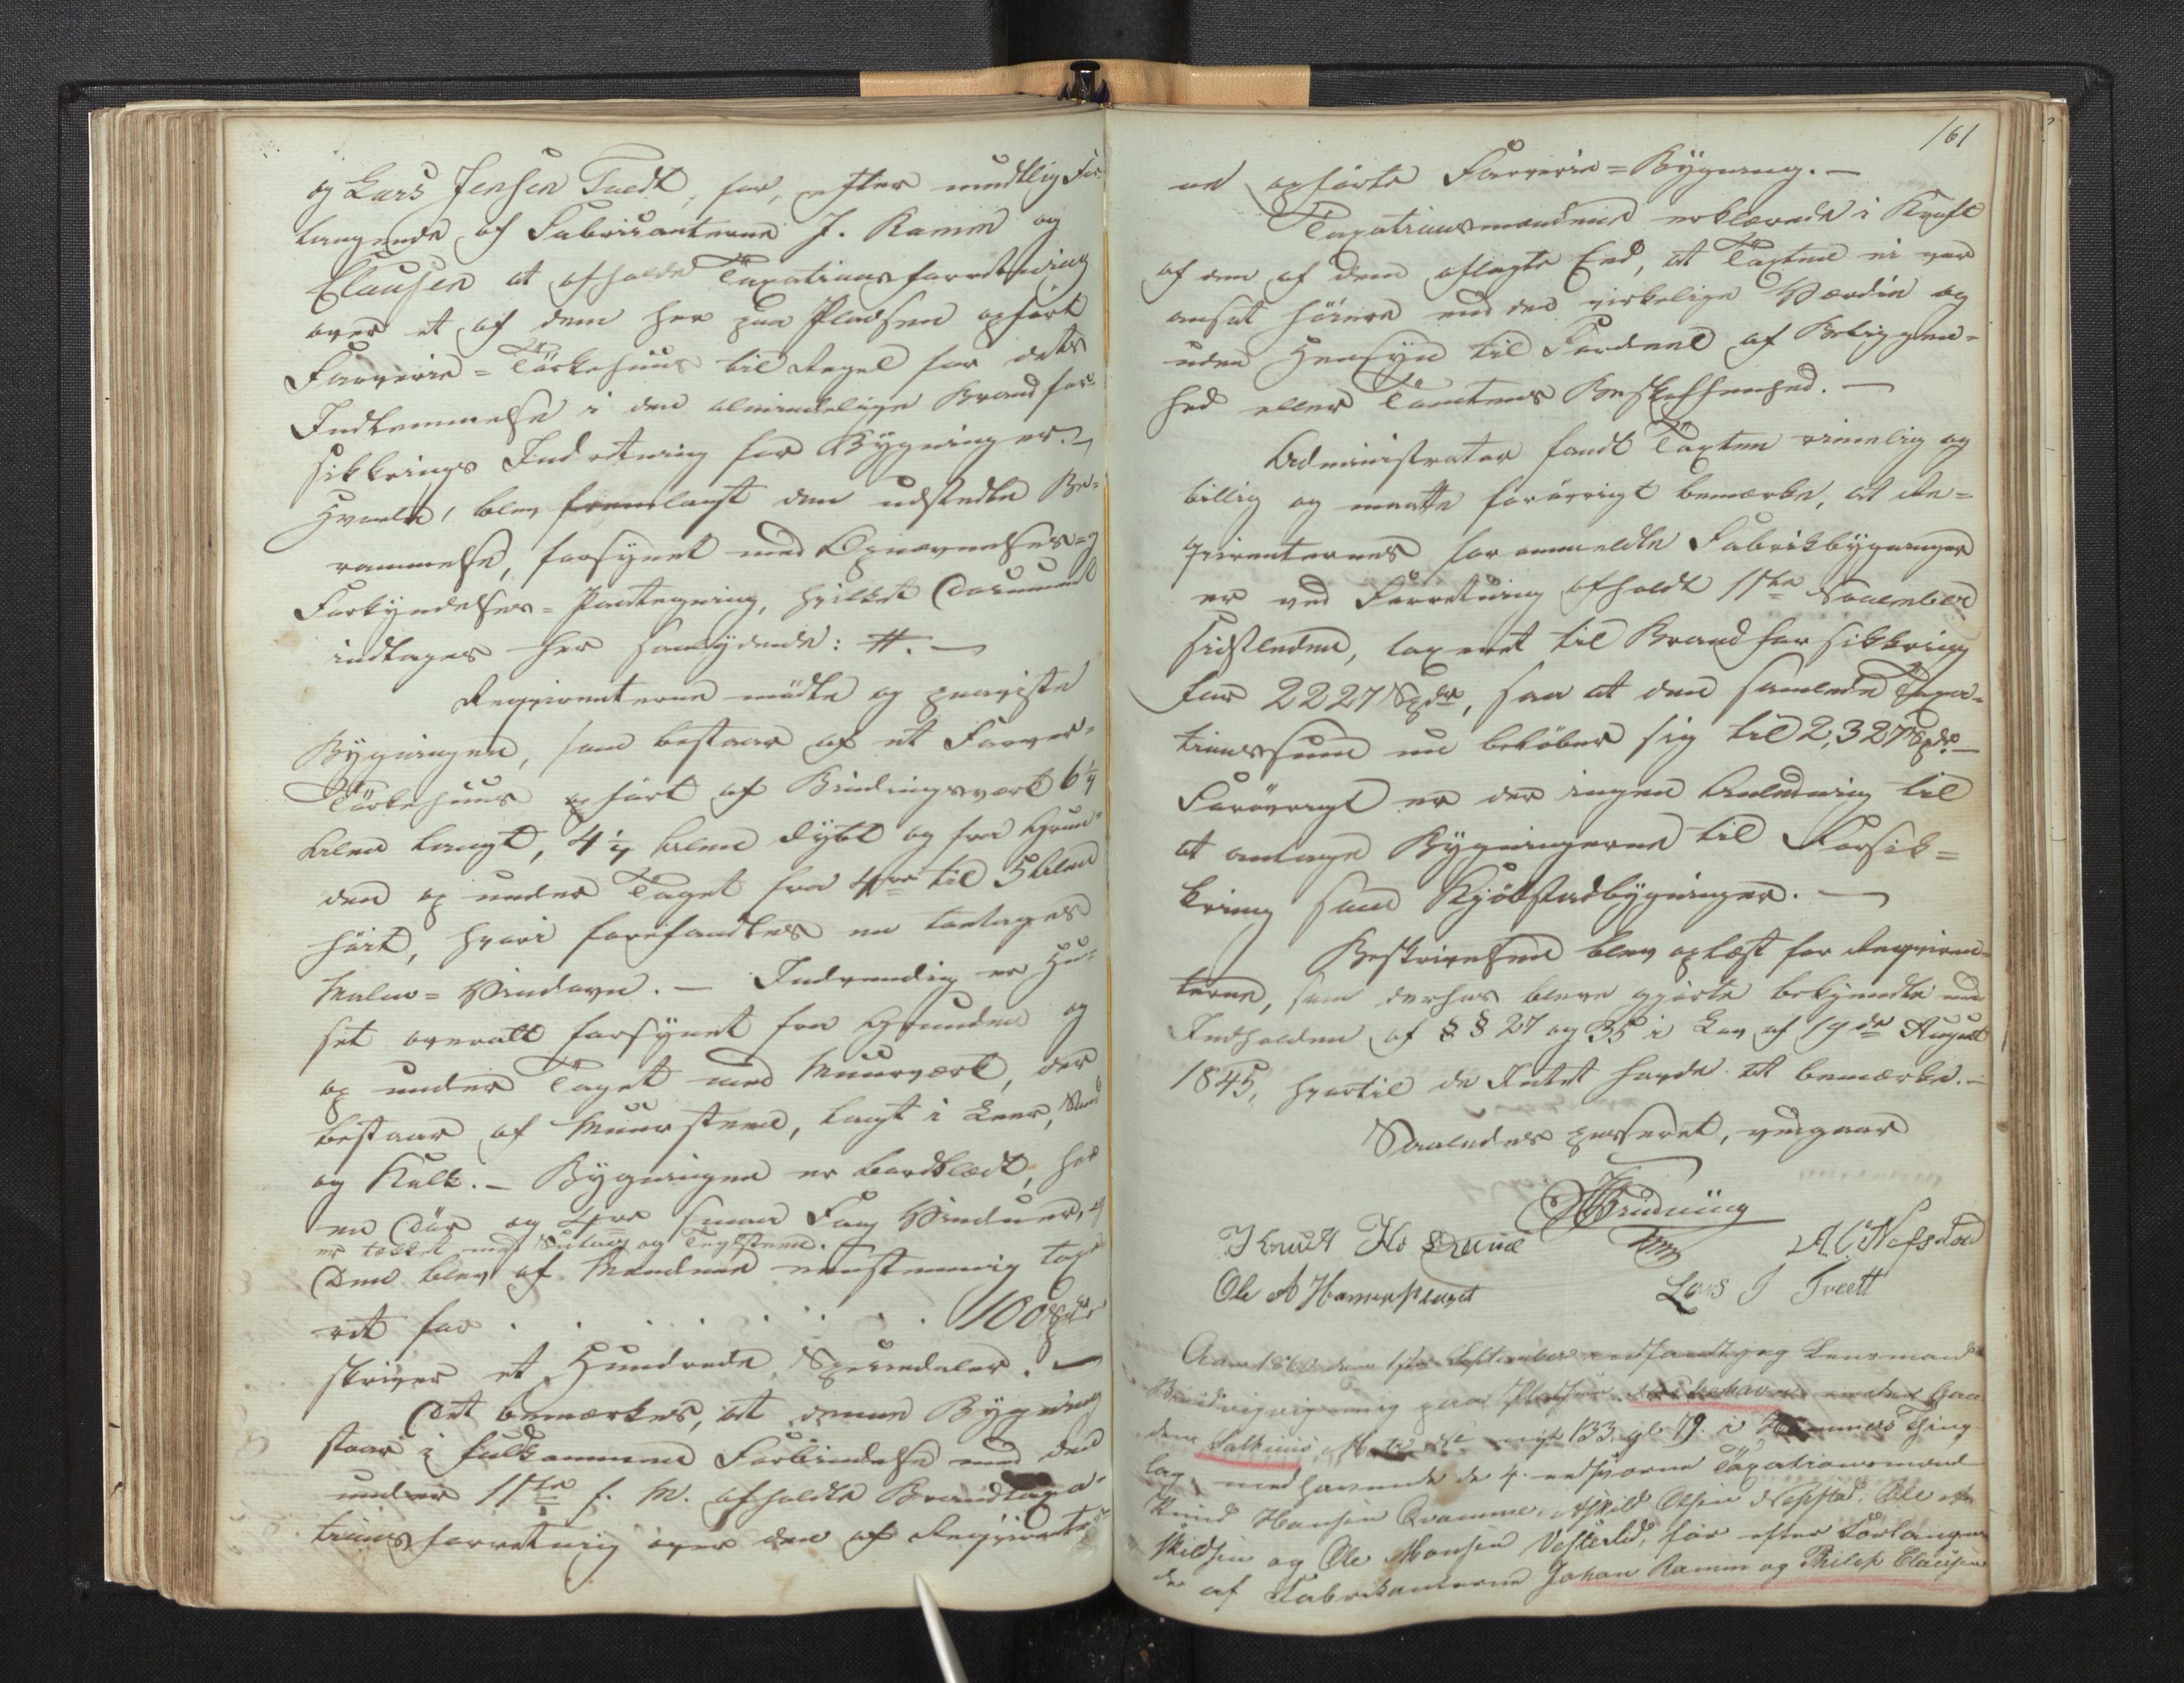 og Lars Jensen Tvedt, for, efter mundtlig For-
langende af Fabricanterne J. Ramm og
Clausen at afholde Taxationsforretning
over et af dem her paa Pladsen opført
Farverie-Tørkehuus til Regel for dets
Indlemmelse i den almindelige Brandfor-
sikkrings Indretning for Bygninger.
Hvorda blev fremlagt den udstedte Be-
rammelse, forsynet med Opnævnelses- og
Forkyndelses-Paategning, hvilket Document
indtages her saalydende: #. —
Reqvirenterne mødte og paaviste
Bygningen, som bestaar af et Farver-
Tørkehuus opført af Bindingsværk 6¼
Alen langt, 4¼ Alen dybt og fra Grun-
den op under Taget fra 4re til 5 Alen
høit, hvori forefandtes en toetages
Malm-Vindovn. — Indvendig er Hu-
set overalt forsynet fra Grunden og
op under Taget med Muurværk, der
bestaar af Muursteen, lagt i Leer, Sand
og Kalk. — Bygningen er bordklædt, har
en Dør og 4re smaa Fag Vinduer, og
er tækket med Sutag og Teglsteen. —
Den blev af Mændene eenstemmig taxe-
ret for . . . . . . . . 100 Spdr
skriver et Hundrede Speciedaler. —
Det bemærkes, at denne Bygning
staar i fuldkommen Forbindelse med den
under 11te f. M. afholdte Brandtaxa-
tionsforretning over den af Reqvirenter-
161
ne opførte Farverie-Bygning. —
Taxationsmændene erklærede i Kraft
af den af dem aflagte Eed, at Taxten ei var
ansat høiere end den virkelige Værdie og
uden Hensyn til Fordeel af Beliggen-
hed eller Tomtens Beskaffenhed. —
Administrator fandt Taxten rimelig og
billig og maatte forøvrigt bemærke, at Re-
qvirenternes foranmeldte Fabrikbygninger
er ved Forretning afholdt 11te November
sidstleden, taxeret til Brandforsikkring
for 2227 Spdr, saa at den samlede Taxa-
tionssum nu beløber sig til 2,327 Spdr. —
Forøvrigt er der ingen Anledning til
at antage Bygningerne til Forsik-
kring som Kjøbstadbygninger. —
Beskrivelsen blev oplæst for Reqviren-
terne, som derhos bleve gjorte bekjendte med
Indholden af §§ 27 og 35 i Lov af 19de August
1845, hvortil de Intet havde at bemærke. —
Saaledes passeret, vidgaar
Knud H
A C Nepstad
Ole A Hammersland
Lars J Tvedt
Aar 1860 den 1ste September indfandt jeg Lensmand
mig paa Pladsen under Gaa
den Salhuus, Matr No 133, gl 79. i Hammers Thing-
lag, medhavende de 4 edsvorne Taxationsmænd
Knud Hansen Qvamme, Askild Olsen Nepstad, Ole A
skildsen og Ole Monsen Vestlid, for efter Forlangen
de af Fabrikanterne Johan Ramm og Philip Clausen